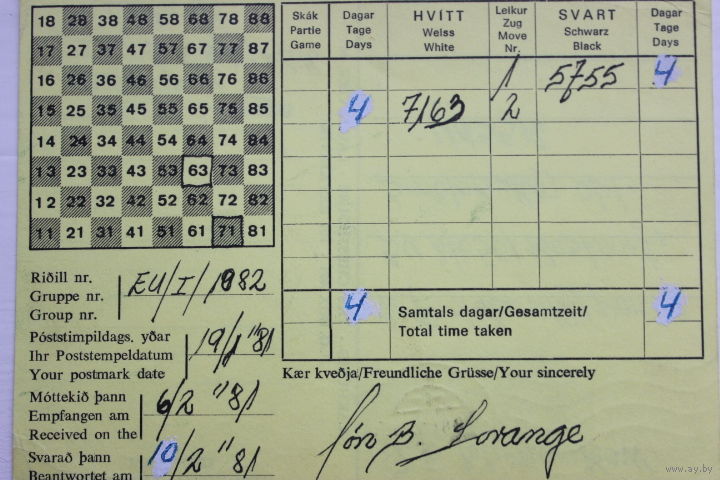 18 28 38 48 58 68 78 88
17 27 37 47 57 67 77 87
16 26 36 46 56 66 76 86
15 25 35 45 55 65 75 85
14 24 34 44 54 64 74 84
13 23 33 43 53 63 73 83
12 22 32 42 52 62 72 82
11 21 31 41 51 61 71 81
Skák
Partie
Game
Dagar
Tage
Days
HVÍTT
Weiss
White
Leikur
Zug
Move
Nr.
SVART
Schwarz
Black
Dagar
Tage
Days
1 5755 4
4 7163 2
4 Samtals dagar/Gesamtzeit/ 4
Total time taken
Riðill nr.
Gruppe nr.
Group nr.
EU/I/1982
Póststimpildags. yðar
Ihr Poststempeldatum
Your postmark date
19/1 "81
Móttekið þann
Empfangen am
Received on the
6/2 "81
Svarað þann
Beantwortet am
10/2 "81
Kær kveðja/Freundliche Grüsse/Your sincerely
Jón B. Lorange
www.ay.by